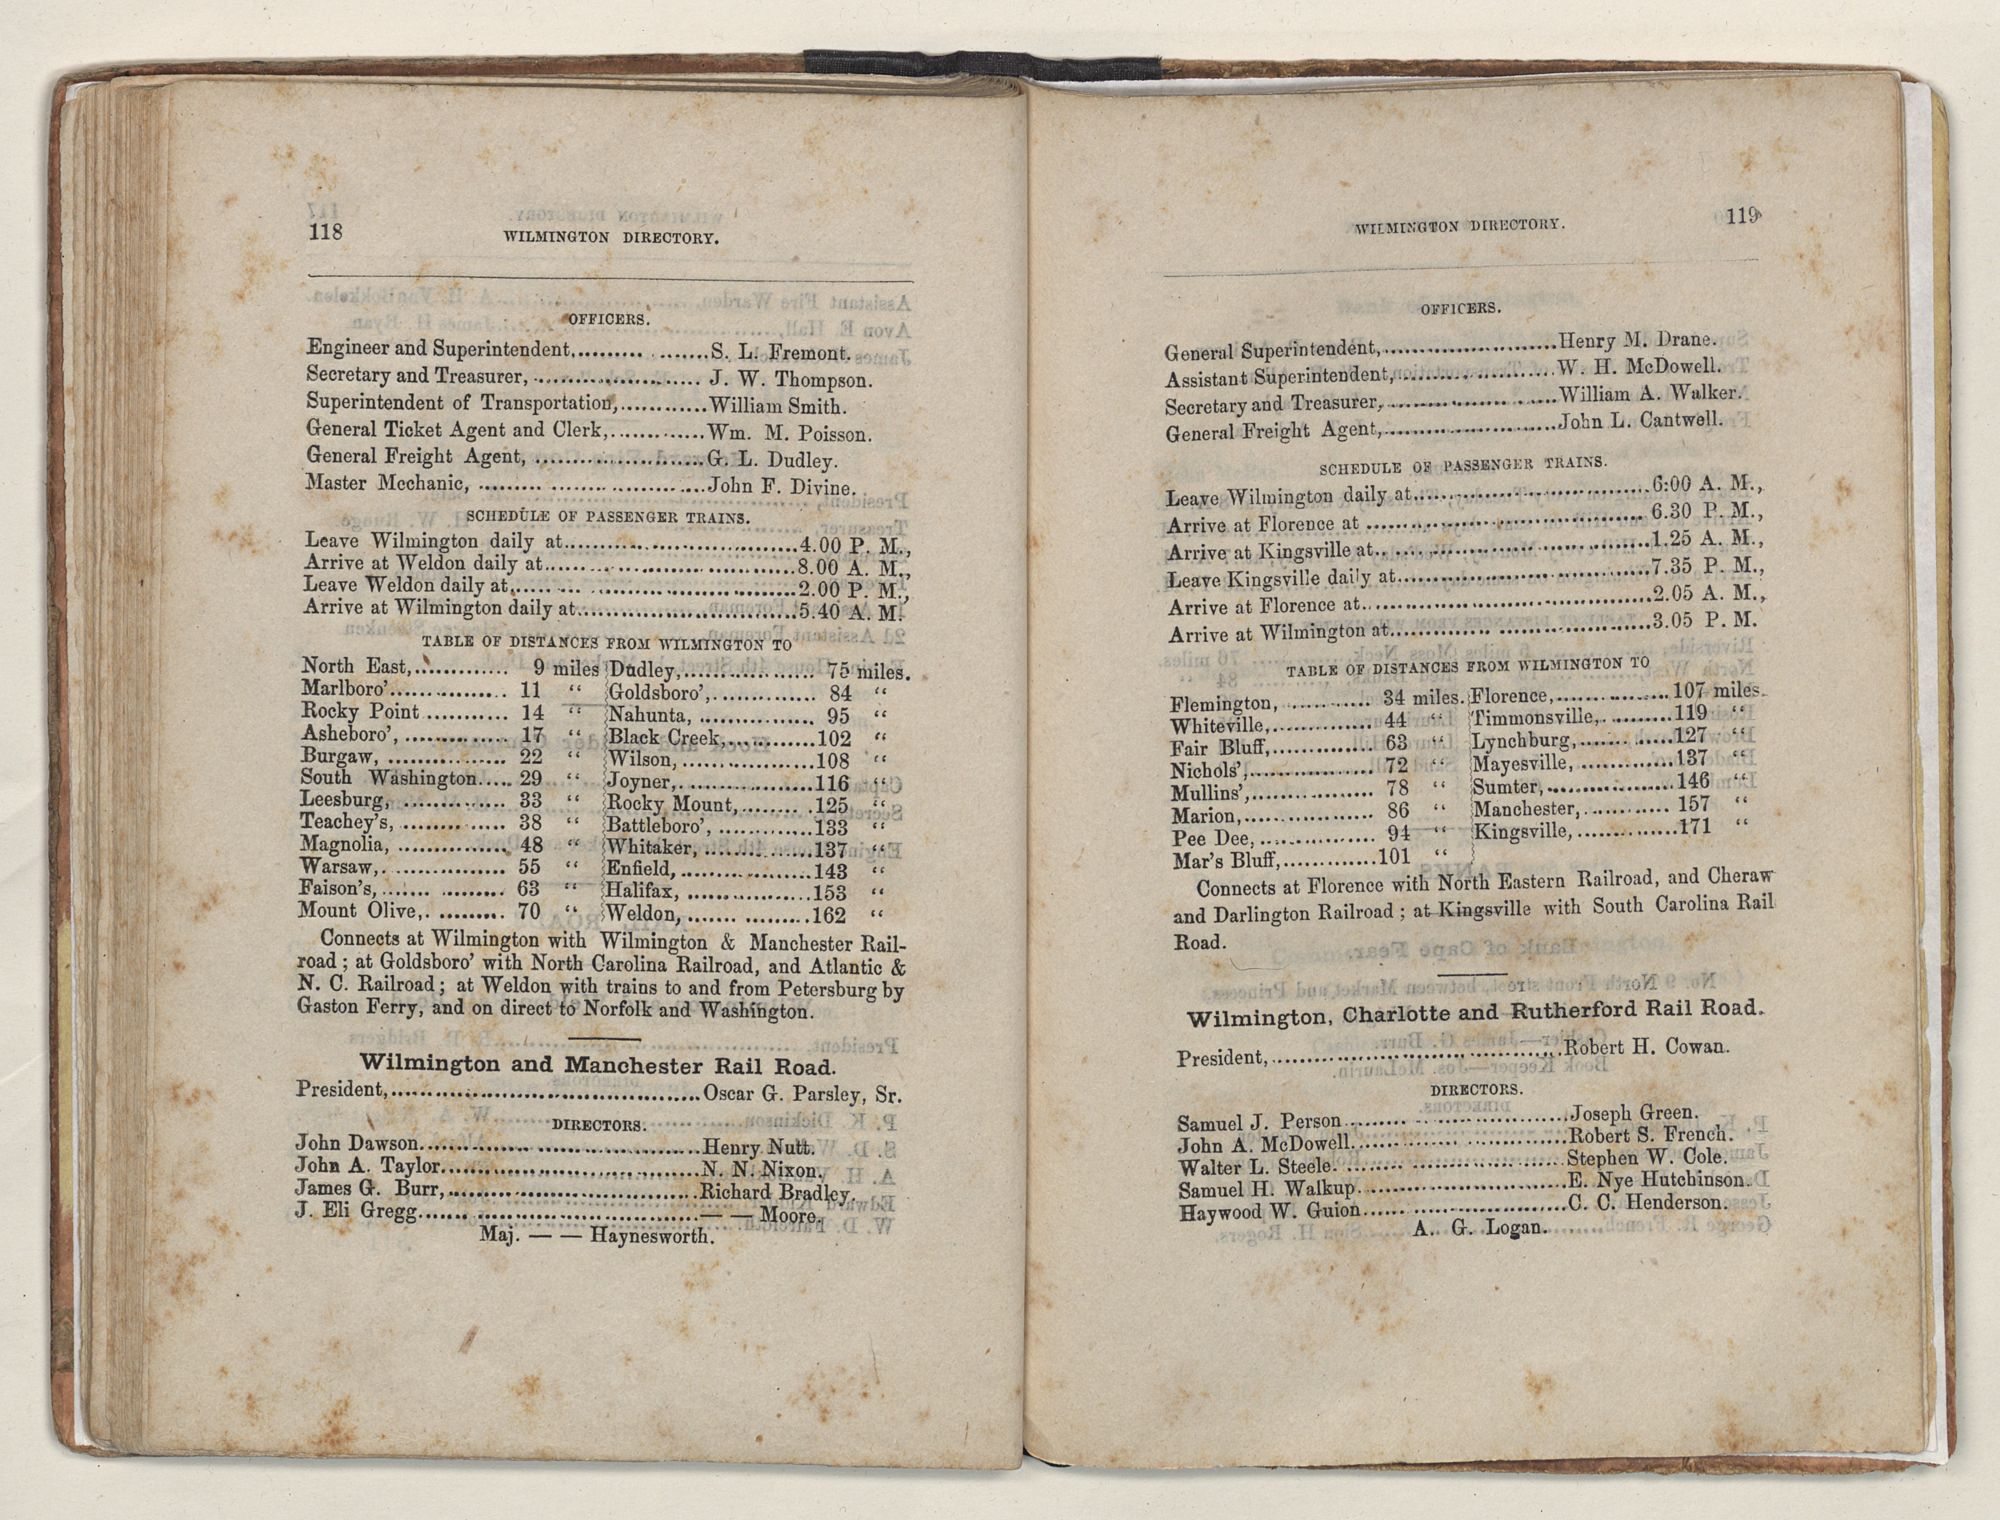 118
WILMINGTON DIRECTORY.
OFFICERS.
Engineer and Superintendent,................S. L. Fremont.
Secretary and Treasurer,..................... J. W. Thompson.
Superintendent of Transportation,............William Smith.
General Ticket Agent and Clerk,.............Wm. M. Poisson.
General Freight Agent, .......................G. L. Dudley.
Master Mechanic, .............................John F. Divine.
SCHEDULE OF PASSENGER TRAINS.
Leave Wilmington daily at................................4.00 P. M.,
Arrive at Weldon daily at.................................8.00 A. M.,
Leave Weldon daily at,....................................2.00 P. M.,
Arrive at Wilmington daily at............................5.40 A. M.
TABLE OF DISTANCES FROM WILMINGTON TO
North East,............. 9 miles Dudley,.................. 75 miles.
Marlboro'................ 11 “ Goldsboro',.............. 84 “
Rocky Point ........... 14 “ Nahunta, ................ 95 “
Asheboro', .............. 17 “ Black Creek,............102 “
Burgaw, ................ 22 “ Wilson,..................108 “
South Washington..... 29 “ Joyner,..................116 “
Leesburg, .............. 33 “ Rocky Mount, .........125 “
Teachey's, .............. 38 “ Battleboro', .............133 “
Magnolia, ............... 48 “ Whitaker, ...............137 “
Warsaw,................. 55 “ Enfield,..................143 “
Faison's,................. 63 “ Halifax, .................153 “
Mount Olive,........... 70 “ Weldon,.................162 “
Connects at Wilmington with Wilmington & Manchester Rail-
road ; at Goldsboro' with North Carolina Railroad, and Atlantic &
N. C. Railroad ; at Weldon with trains to and from Petersburg by
Gaston Ferry, and on direct to Norfolk and Washington.
Wilmington and Manchester Rail Road.
President,..........................................Oscar G. Parsley, Sr.
DIRECTORS.
John Dawson......................................Henry Nutt.
John A. Taylor...................................N. N. Nixon.
James G. Burr,...................................Richard Bradley.
J. Eli Gregg.......................................— — Moore.
Maj. — — Haynesworth.
WILMINGTON DIRECTORY.
119
OFFICERS.
General Superintendent,.......................Henry M. Drane.
Assistant Superintendent,.....................W. H. McDowell.
Secretary and Treasurer,......................William A. Walker.
General Freight Agent,........................John L. Cantwell.
SCHEDULE OF PASSENGER TRAINS.
Leave Wilmington daily at...............................6:00 A. M.,
Arrive at Florence at .................................... 6.30 P. M.,
Arrive at Kingsville at....................................1.25 A. M.,
Leave Kingsville daily at.................................7.35 P. M.,
Arrive at Florence at......................................2.05 A. M.,
Arrive at Wilmington at..................................3.05 P. M.
TABLE OF DISTANCES FROM WILMINGTON TO
Flemington, ........... 34 miles. Florence,................107 miles.
Whiteville,.............. 44 “ Timmonsville,..........119 “
Fair Bluff,.............. 63 “ Lynchburg,.............127 “
Nichols',................. 72 “ Mayesville, .............137 “
Mullins',................. 78 “ Sumter,..................146 “
Marion,.................. 86 “ Manchester,............ 157 “
Pee Dee, ................ 94 “ Kingsville,..............171 “
Mar's Bluff,.............101 “
Connects at Florence with North Eastern Railroad, and Cheraw
and Darlington Railroad ; at Kingsville with South Carolina Rail
Road.
Wilmington, Charlotte and Rutherford Rail Road.
President,........................................Robert H. Cowan.
DIRECTORS.
Samuel J. Person...............................Joseph Green.
John A. McDowell..............................Robert S. French.
Walter L. Steele................................Stephen W. Cole.
Samuel H. Walkup.............................E. Nye Hutchinson.
Haywood W. Guion............................C. C. Henderson.
A. G. Logan.